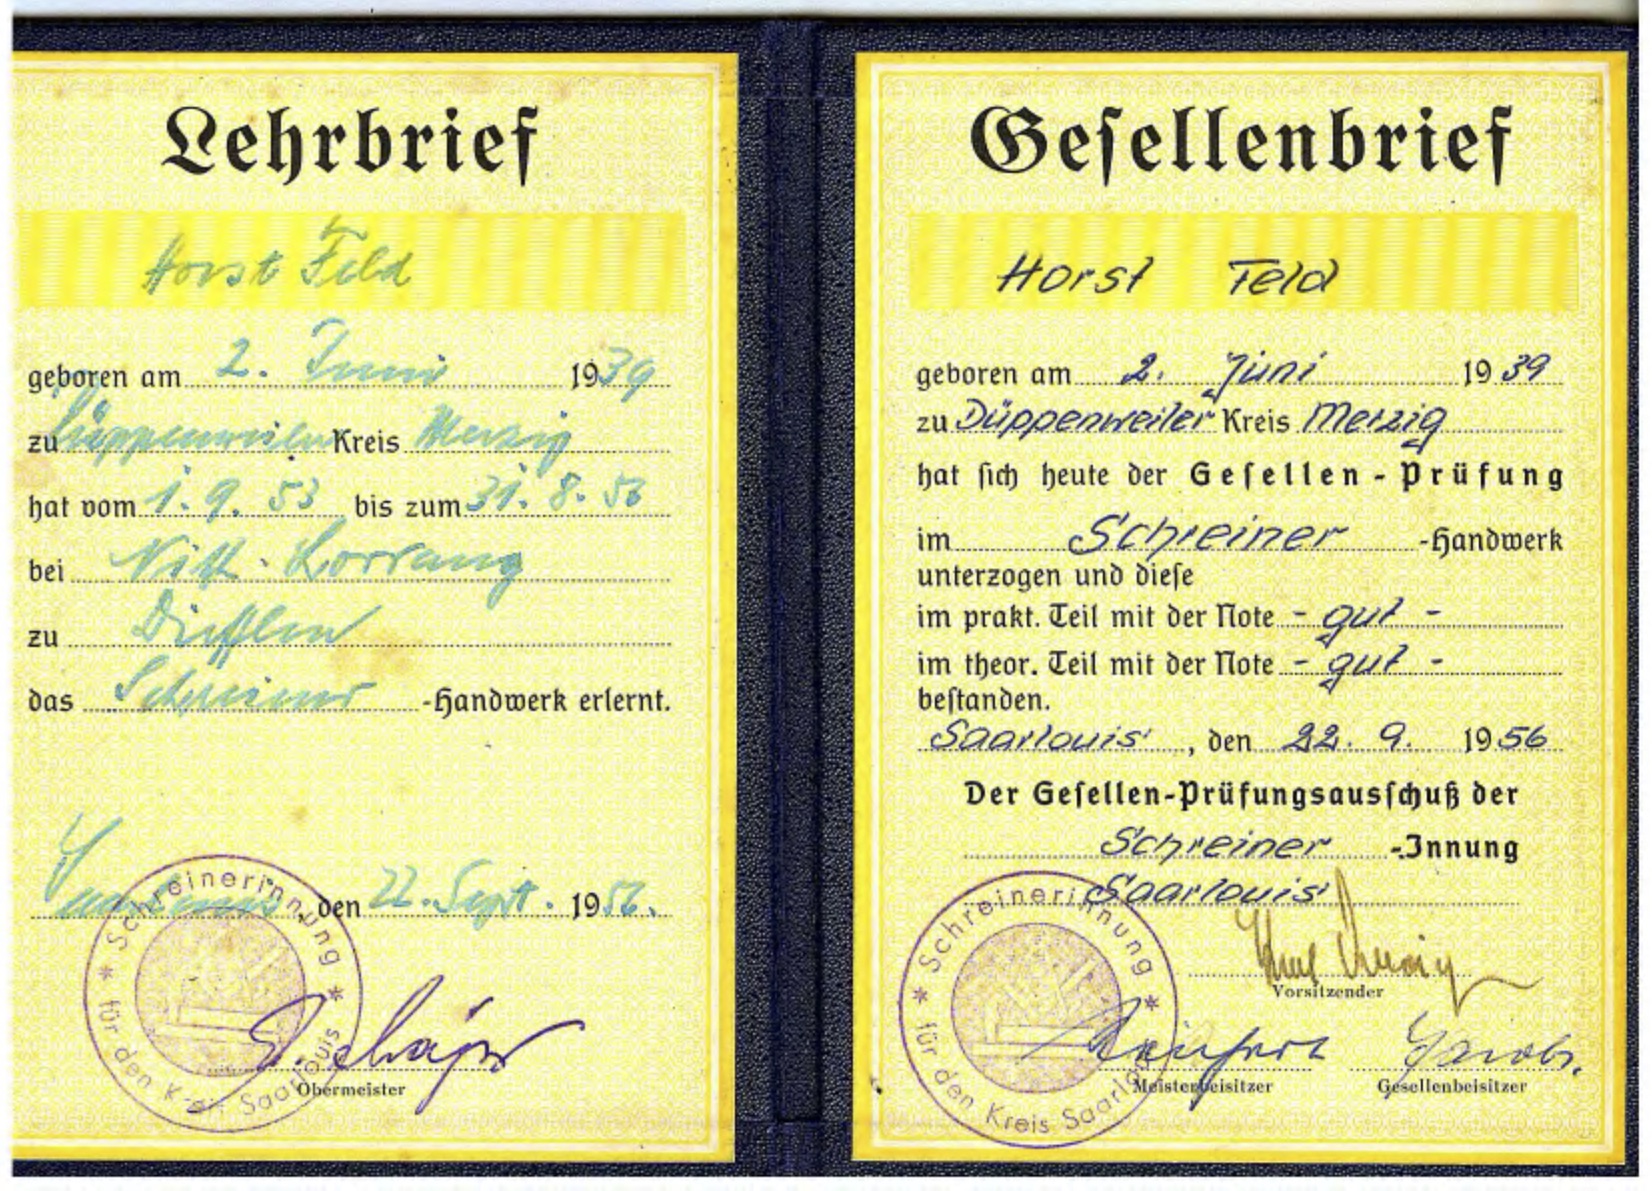 Lehrbrief
Horst Feld
geboren am 2. Juni 1939
zu Düppenweiler Kreis Merzig
hat vom 1. 9. 53 bis zum 31. 8. 56
bei
zu Diefflen
das Schreiner -Handwerk erlernt.
Saarlouis, den 22. Sept. 1956.
Obermeister
* Schreinerinnung * für den Kreis Saarlouis
Gesellenbrief
Horst Feld
geboren am 2. Juni 1939
zu Düppenweiler Kreis Merzig
hat sich heute der Gesellen-Prüfung
im Schreiner -Handwerk
unterzogen und diese
im prakt. Teil mit der Note - gut -
im theor. Teil mit der Note - gut -
bestanden.
Saarlouis, den 22. 9. 1956
Der Gesellen-Prüfungsausschuß der
Schreiner -Innung
Saarlouis
Vorsitzender
Meisterbeisitzer Gesellenbeisitzer
* Schreinerinnung * für den Kreis Saarlouis